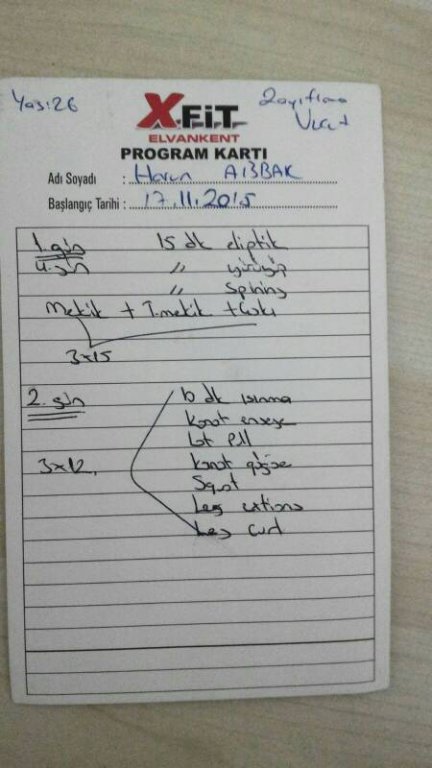 Yaş: 26
Zayıflama
Vücut
X-FiT
ELVANKENT
PROGRAM KARTI
Adı Soyadı : Harun AİBBAK
Başlangıç Tarihi : 17.11.2015
1. gün 15 dk eliptik
4. gün " yürüyüş
" Spining
Mekik + T.mekik +
3x15
2. gün 10 dk ısınma
kanat enseye
Lat Pull
3x12 kanat göğüse
Squat
Leg
Leg Curl